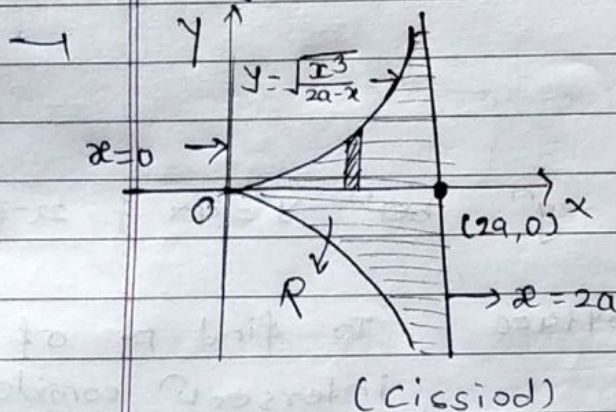 y
y = √(x³/(2a-x)) →
x=0 →
O
(2a,0) x
R
→ x = 2a
(Cissiod)